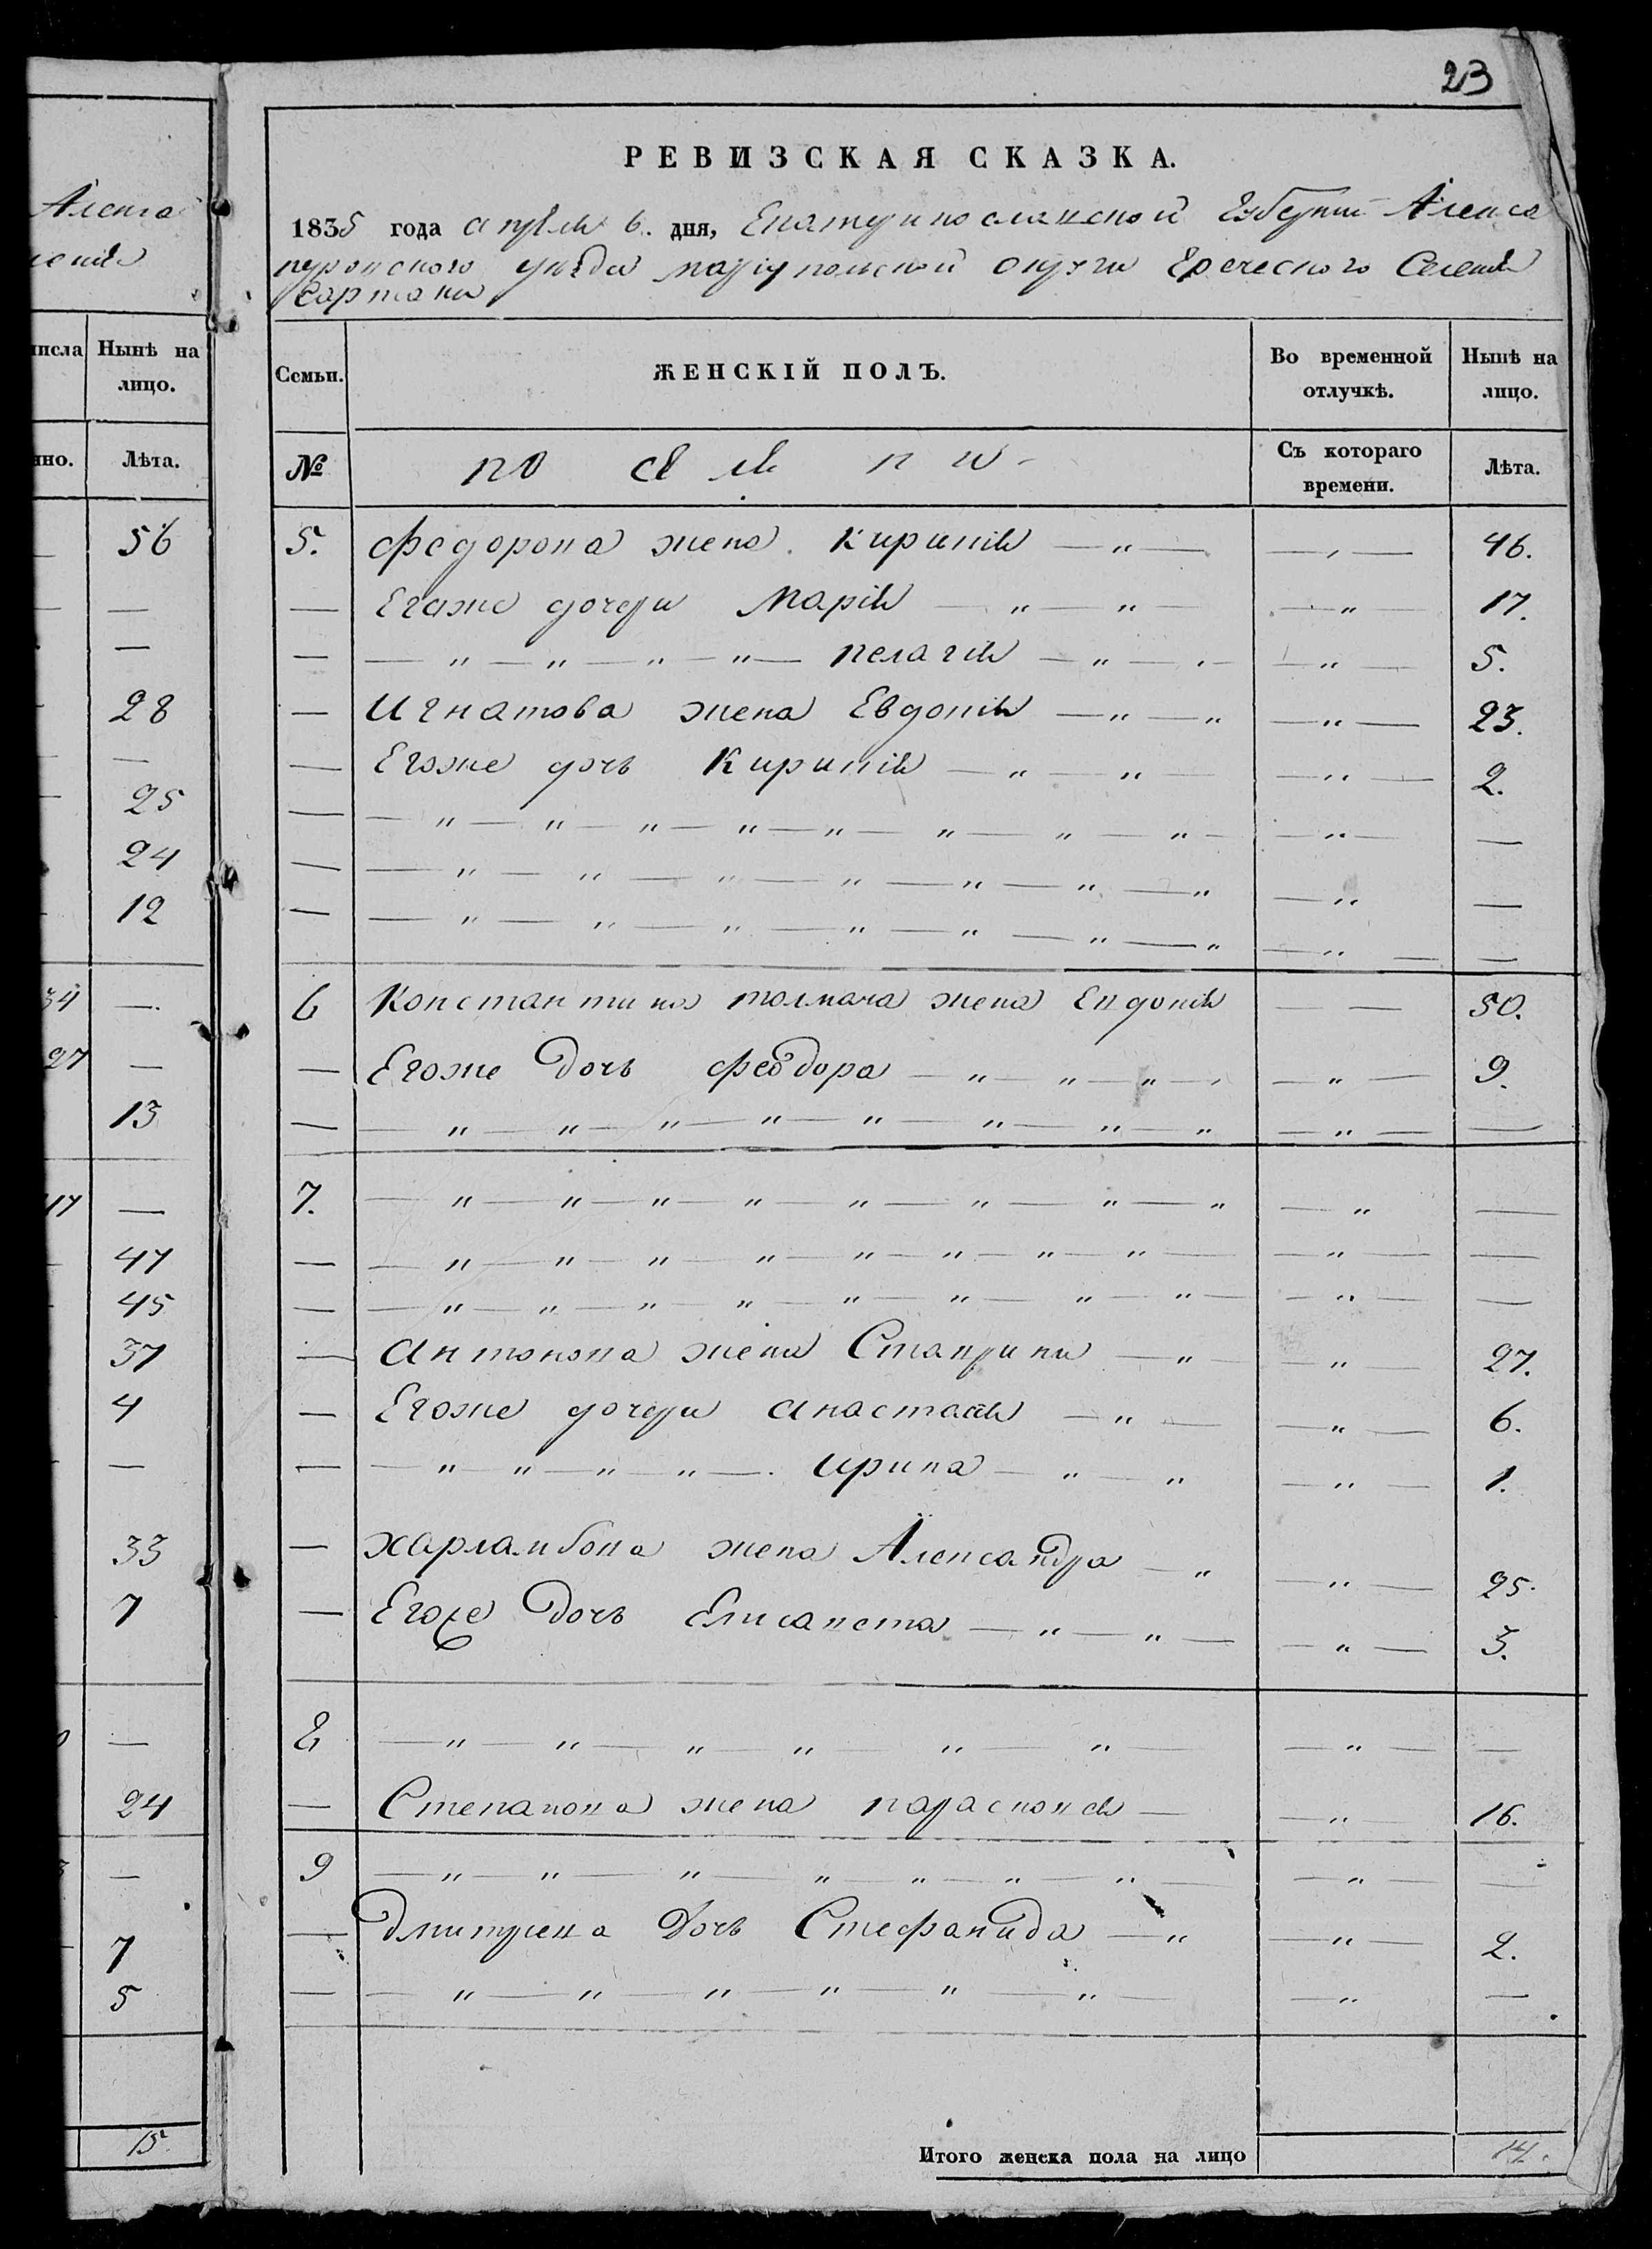 23
РЕВИЗСКАЯ СКАЗКА.
1835 года апреля 6. дня, Екатеринославской Губернии Алекса
ндровского уезда мариупольской округи Греческого Селения
Сартаны
Алекса
исла
Нынѣ на лицо.
нно.
Лѣта.
56
—
—
28
—
25
24
12
34 —
27 —
13
47 —
47
45
37
4
—
33
7
—
24
—
7
5
15
Семьи. ЖЕНСКІЙ ПОЛЪ. Во временной отлучкѣ. Нынѣ на лицо.
№ Съ котораго времени. Лѣта.
5. Федорова жена Кирикія — „ — — „ — 46.
— Егоже дочери Марія — „ „ — „ — 17.
— — „ — „ — „ — „ — пелагія — „ — „ — — „ — 5.
— Игнатова жена Евдокія — „ — „ — „ — 23.
— Егоже дочь Кирикія — „ — „ — — „ — 2.
— — „ — „ — „ — „ — „ — „ — „ — „ — — „ — —
— — „ — „ — „ — „ — „ — „ — „ — „ —
— — „ — „ — „ — „ — „ — „ — „ — „ — —
6 Константина толмача жена Евдокія — — 50.
— Егоже Дочь феодора — „ — „ — „ — — „ — 9.
— — „ — „ — „ — „ — „ — „ — „ — „ — „ — —
7. — „ — „ — „ — „ — „ — „ — „ — „ — „ —
— — „ — „ — „ — „ — „ — „ — „ — „ — — „ — —
— — „ — „ — „ — „ — „ — „ — „ — „ — — „ — —
— Антонова жена Ставрина — „ — — „ — 27.
— Егоже дочери Анастасія — „ — — „ — 6.
— — „ — „ — „ — „ — Ирина — „ — „ — „ — 1.
— Харлампова жена Александра — „ — „ — 25.
— Егоже Дочь Елисавета — „ — „ — — „ — 3.
8 — „ — „ — „ — „ — „ — „ — — „ — —
— Степанова жена парасковея — — „ — 16.
9 — „ — „ — „ — „ — „ — „ — „ — — „ — —
— Дмитриева Дочь Стефанида — „ — „ — 2.
— — „ — „ — „ — „ — „ — „ — — „ — —
Итого женска пола на лицо 14.